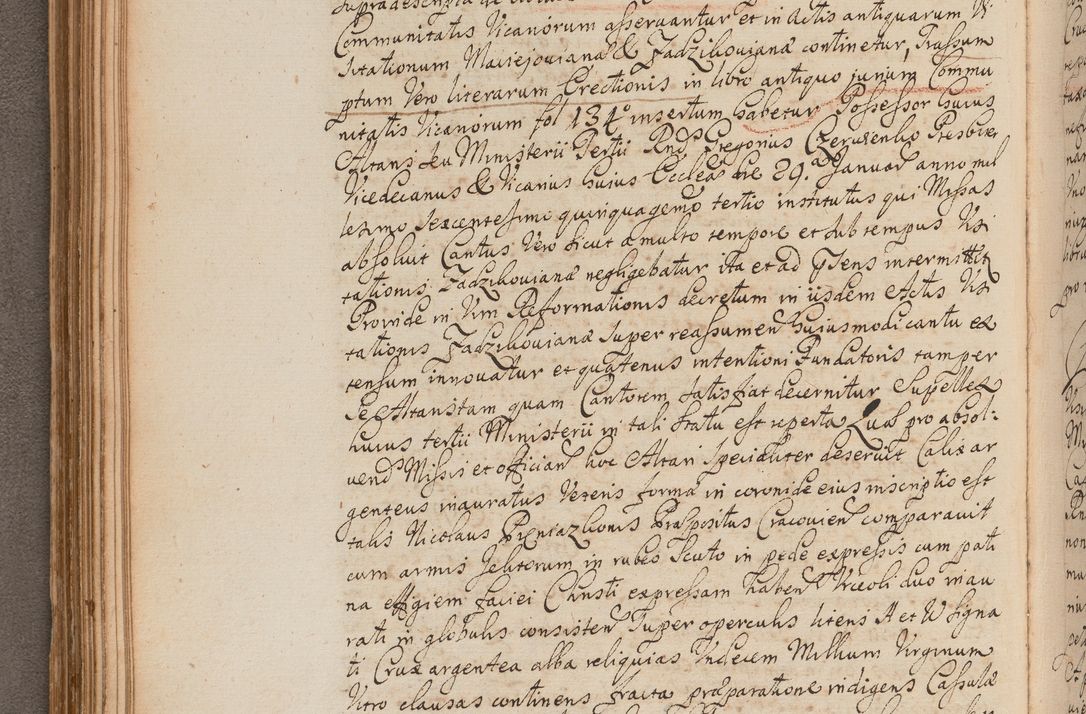 Supradescripta de
Communitatis Vicanorum asservantur et in Actis antiquarum Vi
sitationum Maciejoviana & Zadzikoviana continetur, Trassum
ptum Vero literarum Erectionis in libro antiquo jurium Commu
nitatis Vicanorum fol 134° insertum habetur Possessor huius
Altaris seu Ministerii Tertii Rnd9 Gregorius Czerwenko Presbiter
Vicedecanus & Vicarius huius Ecclae die 29.a Januar anno mil
lesimo sexcentesimo quinquagemo tertio institutus qui Missas
absolvit Cantus Vero sicut a multo tempore et sub tempus Vi
tationis Zadzikoviana negligebatur ita et ad psens intermittit
Provide in Vim Reformationis decretum in iisdem Actis Vi
tationis Zadzikoviana super reassumen huiusmodi cantu ex
tensum innovatur et quatenus intentioni Fundatoris tam per
se Altaristam quam Cantorem satisfiat decernitur Supellex
huius tertii Ministerii in tali statu est reperta Quae pro absol:
vend Missis et officiand hoc Altari specialiter deservit Calix ar
genteus inauratus Veteris forma in coronide eius inscriptio est
talis Nicolaus Pieniazkonis Praepositus Cracovien comparavit
cum armis Jelitorum in rubeo scuto in pede expressis cum pati
na effigiem faciei Christi expressam haben Urceoli duo inau
rati in globulis consisten super operculis literis A et W signa
ti Crux argentea alba reliquias Undecem Millium Virginum
Vitro clausas continens fracta praeparatione indigens Casulae